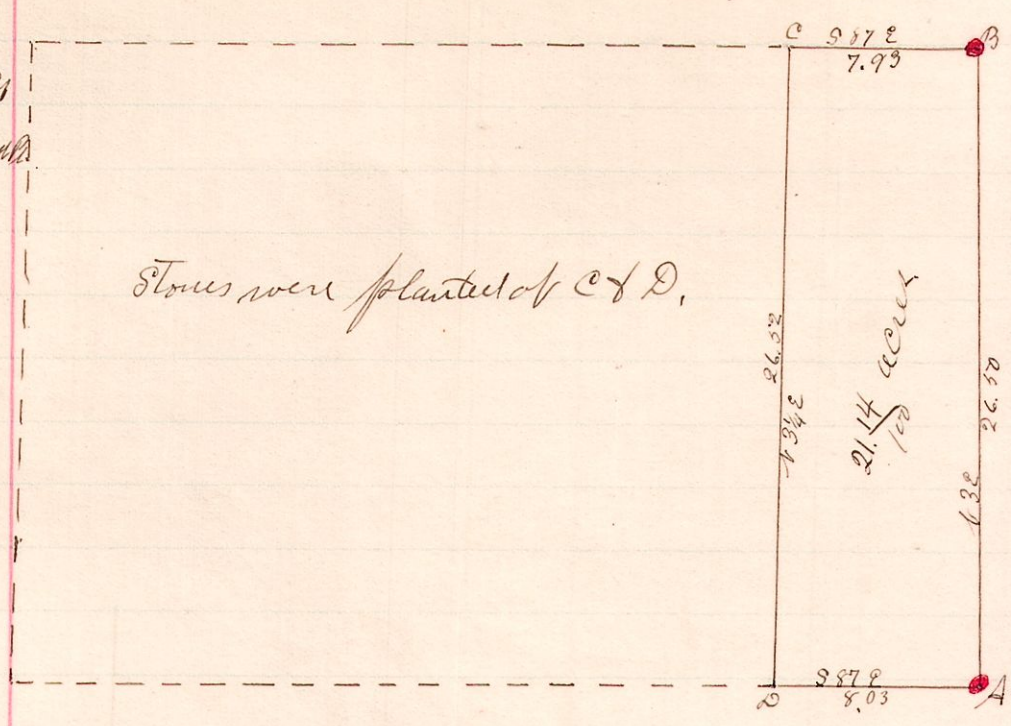 C S 87 E B
7.93
Stones were planted at C & D.
26.52
N 3¼ E
21.14/100 acres
26.50
N 3 E
S 87 E
D 8.03 A